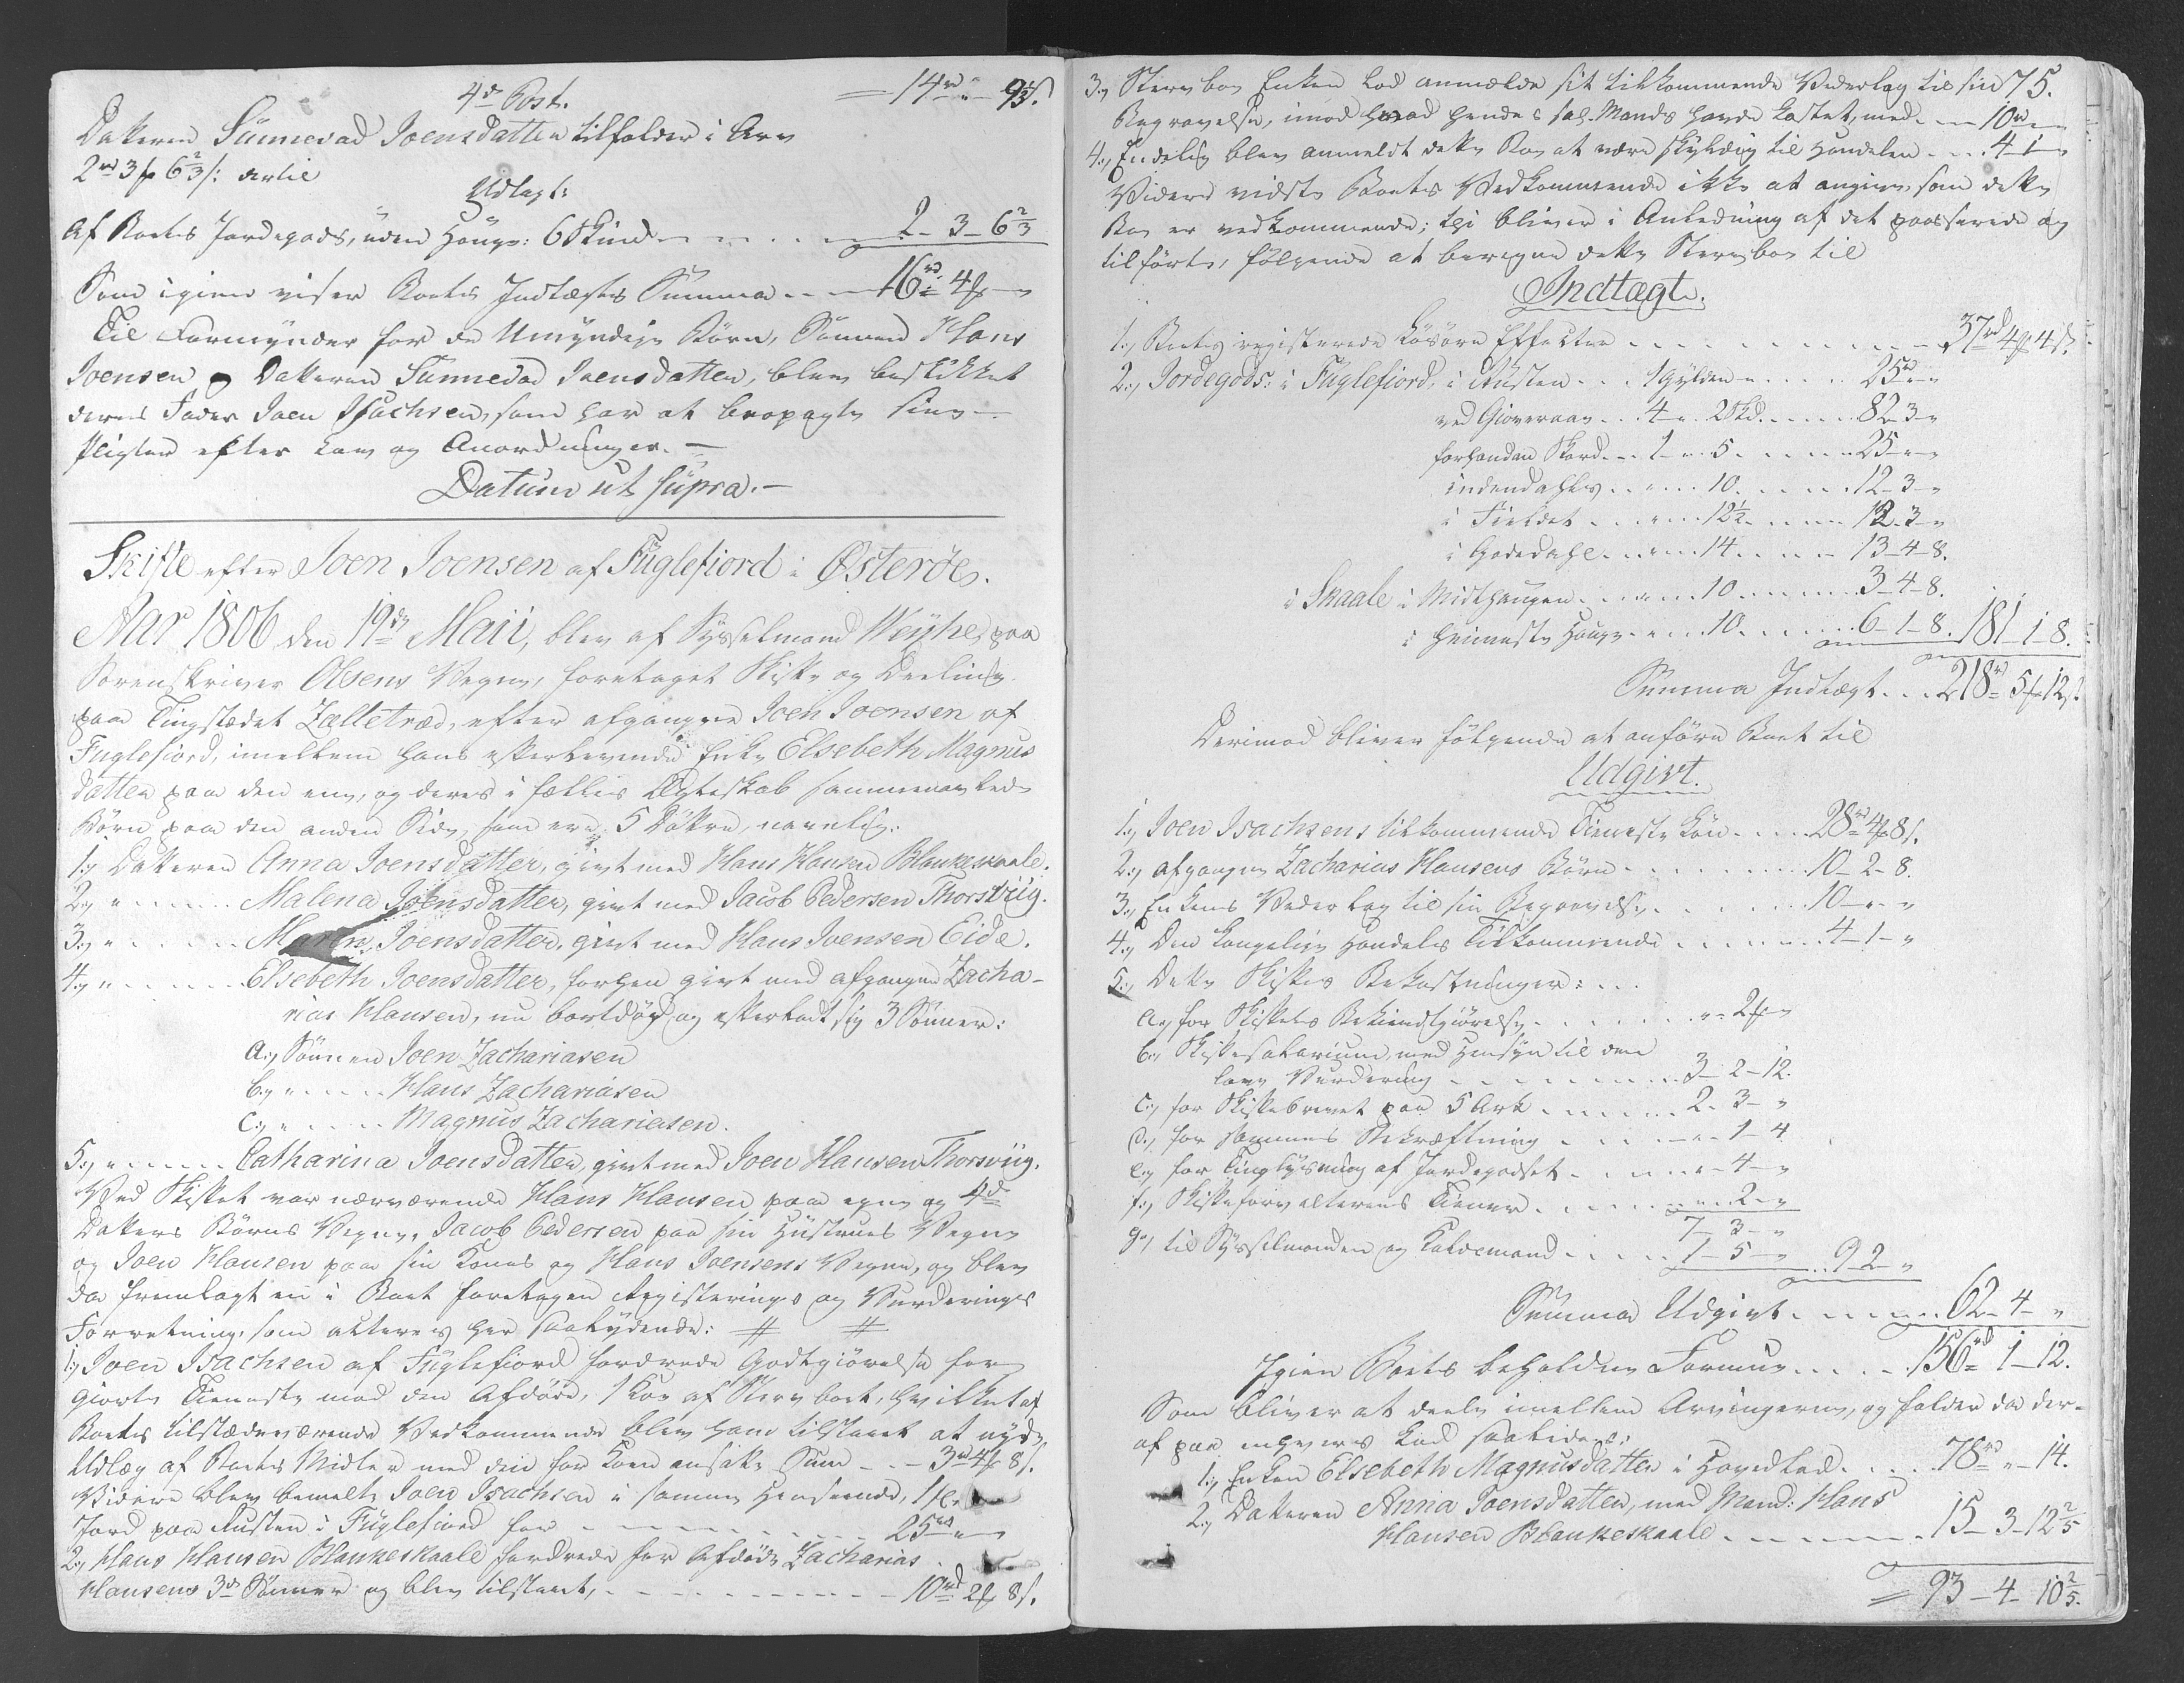 4de Post. = 14rd " 9⅓ s.
Datteren Sünnevad Joensdatter tilfalder i Arv
2rd 3 f 6⅔ s: derlil
Udlagt:
Af Boets Jordegods, uden Hauge: 6 Skind - - - 2 - 3 - 6⅔
Som igien viser Boets Indtægts Summa - - - 16rd 4 f "
Til Formynder for de Umyndige Børn, Sønnen Hans
Joensen og Datteren Sünnevad Joensdatter, blev beskikket
deres Fader Joen Isachsen, som har at iagttage sine
Pligter efter Lov og Anordninger. -
Datum ut supra. -
Skifte efter Joen Joensen af Fuglefiord i Østerøe.
Aar 1806 den 19de Maii, blev af Sysselmand Weyhe, paa
Sorenskriver Olsens Vegne, foretaget Skifte og Deeling
paa Tingstædet Zelletræd, efter afgangne Joen Joensen af
Fuglefiord, imellem hans efterlevende Enke Elsebeth Magnus
datter paa den ene, og deres i fælles Ægteskab sammenavlede
Børn paa den anden Side, som ere 5 Døttre, navnlig:
1.) Datteren Anna Joensdatter, givt med Hans Hansen Blankeskaale.
2.) " - - - Malena Joensdatter, givt med Jacob Pedersen Thorsviig.
3.) " - - - Maren Joensdatter, givt med Hans Joensen Eide.
4.) " - - - Elsebeth Joensdatter, forhen givt med afgangen Zacha-
rias Hansen, nu bortdød og efterladt sig 3 Sønner:
a.) Sønnen Joen Zachariasen
b.) " - - - Hans Zachariasen
c.) " - - - Magnus Zachariasen.
5.) " - - - Catharina Joensdatter, givt med Joen Hansen Thorsviig.
Ved Skiftet var nærværende Hans Hansen paa egne og 4de
Datters Børns Vegne, Jacob Pedersen paa sin Hustrues Vegne
og Joen Hansen paa sin Kones og Hans Joensens Vegne, og blev
da fremlagt en i Boet foretagen Registerings og Vurderings
Forretning, som acteres her saalydende: # #
1.) Joen Isachsen af Fuglefiord fordrede Godtgiørelse for
giorte Tieneste med den Afdøde, 1 Koe af Sterv boet, hvilket af
Boets tilstædeværende Vedkommende blev ham tilstaaet at nyde
Udlæg af Boets Midler med den for Koen ansatte Sum - - 3rd 4 f 8 s.
Videre blev bemelte Joen Isachsen i samme Henseende,
Jord paa Austen i Fuglefiord for - - - 25rd "
2.) Hans Hansen Blankeskaale fordrede for Afdøde Zacharias
Hansens 3de Sønner og blev tilstaaet, - - - 10rd 2 f 8 s.
75.
3.) Stervboe Enken lod anmelde sit tilkommende Vederlag til sin
Begravelse, imod hvad hendes sal. Mands havde kostet, med - - 10rd "
4.) Endelig blev anmeldt dette Boe at være skyldig til Handelen - - - 4 - 1 - "
Videre vidste Boets Vedkommende ikke at angive, som dette
Boe er vedkommende; thi bliver i Anledning af det passerede og
tilførte, følgende at beregne dette Stervboe til
Indtægt.
1.) Boets registerede Løsøre Effecter - - - 37rd 4 f 4 s.
2.) Jordegods: i Fuglefiord, i Austen - - 1 Gylden - - - 25rd "
ved Gioveraae - - 4 " 2 Skd. - - - 82 - 3 - "
forhanden Skord - - 1 - " 5 - - - 25 - " - "
indendahls - - " - 10. - - - 12 - 3 - "
i Fieldet - - " - 12½ - - - 12 - 3 - "
i Godedahl - - " - 14 - - - 13 - 4 - 8.
i Skaale i Midthaugen - - " - 10 - - - 3 - 4 - 8.
i heimeste Hauge - " - 10 - - - 6 - 1 - 8. 181 - 1 - 8.
Summa Indtægt - - 218rd 5 f 12 s.
Derimod bliver følgende at anføre Boet til
Udgivt.
1.) Joen Isachsens tilkommende Tieneste Løn - - - 28rd 4 f 8 s.
2.) afgangen Zacharias Hansens Børn - - - 10 - 2 - 8.
3.) Enkens Vederlag til sin Begravelse - - - 10 - " - "
4.) Den Kongelige Handels Tilkommende - - - 4 - 1 - "
5.) Dette Skiftes Bekostninger: - - -
a.) for Skiftets Bekiendtgiørelse - - - " - 2 f "
b.) Skiftesalarium, med Hensyn til den
lave Vurdering - - - 3 - 2 - 12.
c.) for Skiftebrevet paa 5 Ark - - - 2 - 3 - "
d.) for sammes Bekræftning - - - " - 1 - 4
e.) for Tinglysning af Jordegodset - - - " - 4 - "
f.) Skifteforvalterens Tiener - - - " - 2 - "
7 - 3 - "
g.) til Sysselmanden og Talsmand - - - 1 - 5 - " 9 - 2 - "
Summa Udgivt - - - 62 - 4 - "
Igien Boets beholdne Formue - - - 156rd 1 - 12.
Som bliver at deele imellem Arvingerne, og falder da der-
af paa enhvers Lod saaledes:
1.) Enken Elsebeth Magnusdatter i Hovedlod - - - 78rd " - 14.
2.) Datteren Anna Joensdatter, med Mand: Hans
Hansen Blankeskaale - - - 15 - 3 - 12⅖
= 93 - 4 - 10⅖.